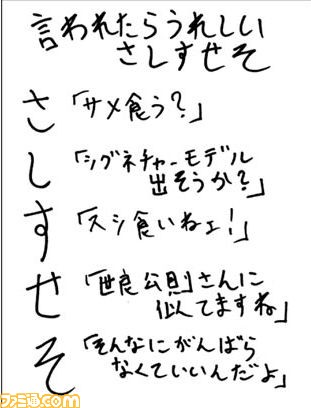 言われたらうれしい
さしすせそ
さ「サメ食う？」
し「シグネチャーモデル
出そうか？」
す「スシ食いねェ！」
せ「世良公則さんに
似てますね」
そ「そんなにがんばら
なくていいんだよ」
ファミ通.com